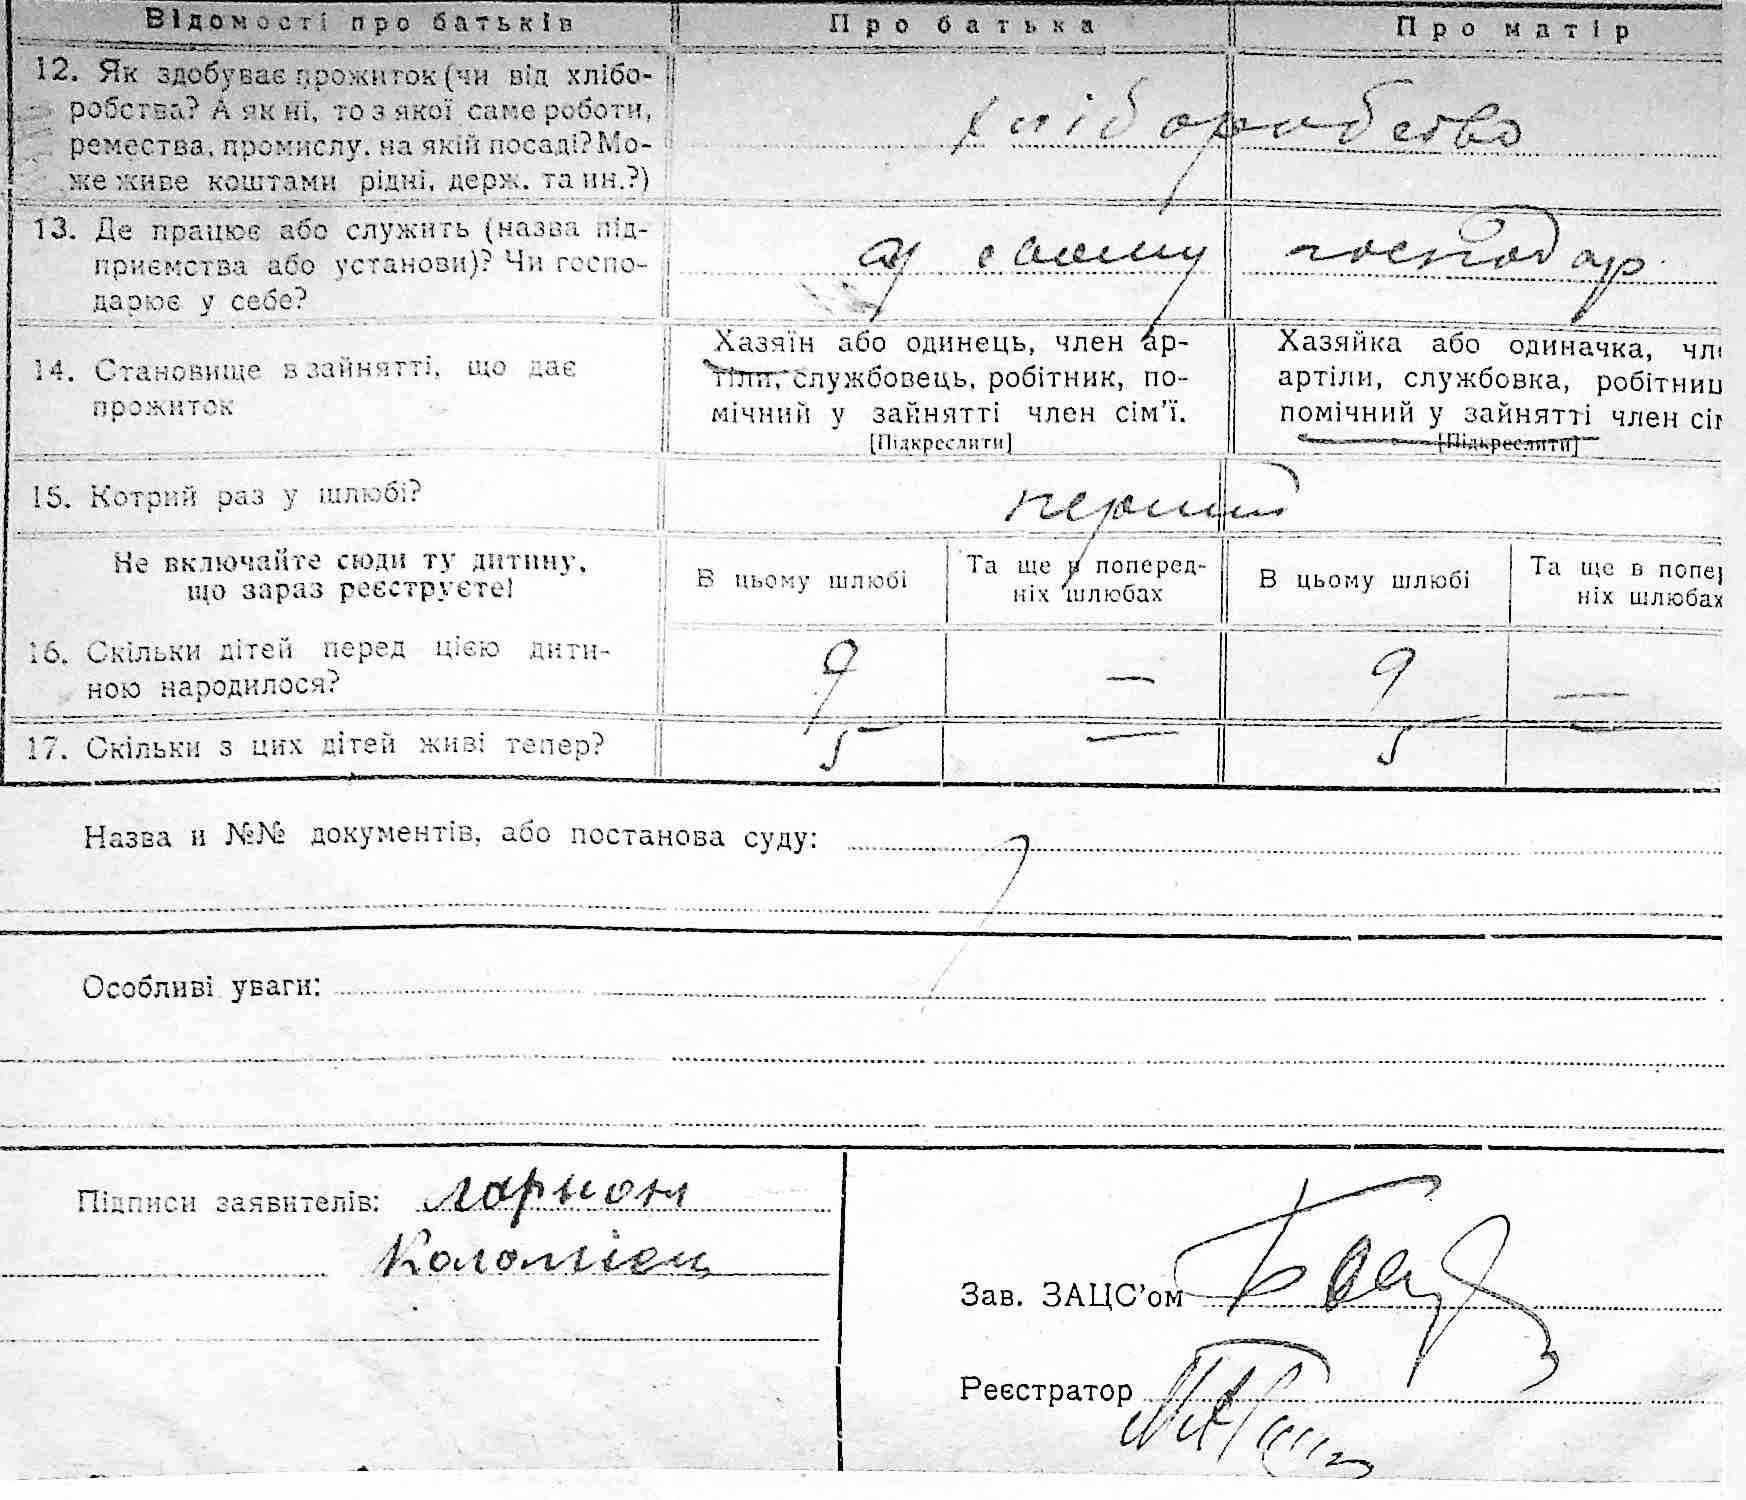 Відомості про батьків Про батька Про матір
12. Як здобуває прожиток (чи від хлібо-
робства? А як ні, то з якої саме роботи,
ремества, промислу, на якій посаді? Мо-
же живе коштами рідні, держ. та ин.?)
хліборобство
13. Де працює або служить (назва під-
приємства або установи)? Чи госпо-
дарює у себе?
у своему господар
14. Становище в зайнятті, що дає
прожиток
Хазяїн або одинець, член ар-
тіли, службовець, робітник, по-
мічний у зайнятті член сім'ї.
[Підкреслити]
Хазяйка або одиначка, чл
артіли, службовка, робітниц
помічний у зайнятті член сім
[Підкреслити]
15. Котрий раз у шлюбі?
перший
Не включайте сюди ту дитину,
що зараз реєструєте!
В цьому шлюбі
Та ще в поперед-
ніх шлюбах
В цьому шлюбі
Та ще в попер
ніх шлюбах
16. Скільки дітей перед цією дити-
ною народилося?
9 — 9 —
17. Скільки з цих дітей живі тепер?
5 — 5 —
Назва и №№ документів, або постанова суду:
Особливі уваги:
Підписи заявителів: Ларион
Коломіец
Зав. ЗАЦС'ом
Реєстратор